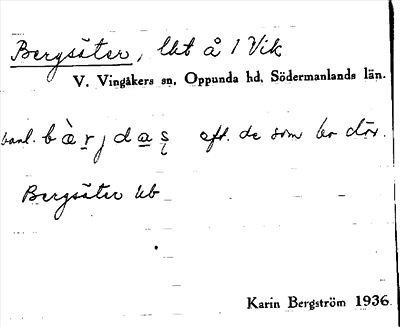 Bergsäter, lht å 1 Vik
V. Vingåkers sn, Oppunda hd, Södermanlands län.
vanl. bæ̀rjdas eft. de som bor där.
Bergsäter kb
Karin Bergström 1936.